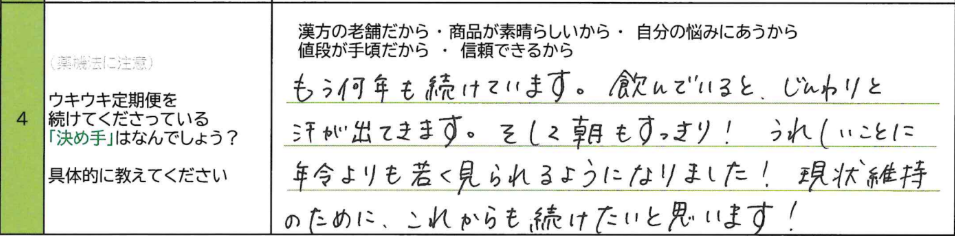 漢方の老舗だから・商品が素晴らしいから・ 自分の悩みにあうから
値段が手頃だから ・ 信頼できるから
(薬機法に注意)
4
ウキウキ定期便を
続けてくださっている
「決め手」はなんでしょう？
具体的に教えてください
もう何年も続けています。飲んでいると、じんわりと
汗が出てきます。そして朝もすっきり！ うれしいことに
年令よりも若く見られるようになりました！ 現状維持
のために、これからも続けたいと思います！